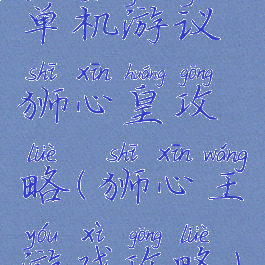 单机游议
shī xīn huáng gōng
狮心皇攻
lüè shī xīn wáng
略(狮心王
yóu xì gōng lüè
游戏攻略)